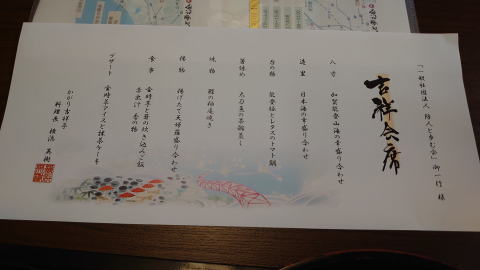 「一般社団法人 防人と歩む会」御一行 様
吉祥会席
八寸 加賀能登山海の幸盛り合わせ
造里 日本海の幸盛り合わせ
台の物 能登豚とレタスのトマト鍋
蓋物 太刀魚の茶碗蒸し
焼物 鰤の柚庵焼き
揚物 揚げたて天婦羅盛り合わせ
食事 金時芋と茸の炊き込みご飯
赤出汁 香の物
デザート 金時草アイスと抹茶ケーキ
かがり吉祥亭
料理長 横浜 英樹